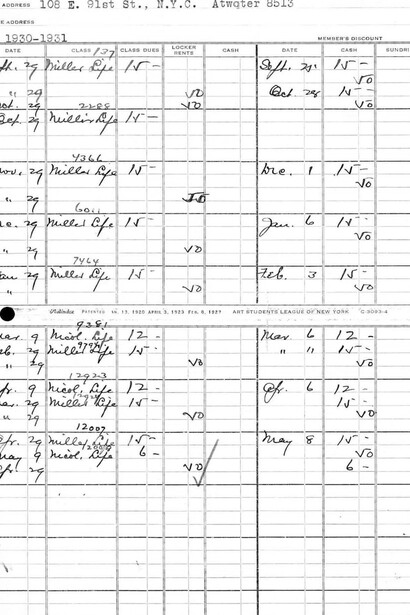 ADDRESS 108 E. 91st St., N.Y.C. Atwqter 8513
E ADDRESS
1930-1931 MEMBER'S DISCOUNT
DATE CLASS 137 CLASS DUES LOCKER RENTS CASH DATE CASH SUNDRI
pt. 29 Miller Life 15- Sept. 15-
VO
" 29 VO Oct. 28 15-
Oct. 29 2288 VO VO
Oct. 29 Miller Life 15-
4366
Nov. 29 Miller Life 15- Dec. 1 15-
VO
" 29
6011
ec. 29 Miller Life 15- Jan. 6 15-
VO
" 29 VO
7464
an 29 Miller Life 15- Feb. 3 15-
" VO VO
PATENTED 1923 APRIL 3, 1923 FEB. 8, 1927 ART STUDENTS LEAGUE OF NEW YORK C 3093-4
9381
ar. 9 Nicol. Life 12- Mar. 6 12-
b. 29 Miller Life 15- " " 15-
" 29 VO VO
12923
pr. 9 Nicol. Life 12- Apr. 6 12-
ar. 29 Miller Life 15- 15-
" 29 VO VO
12007
pr. 29 Miller Life 15- May 8 15-
May 9 Nicol. Life 6- VO
pr. 29 VO 6-